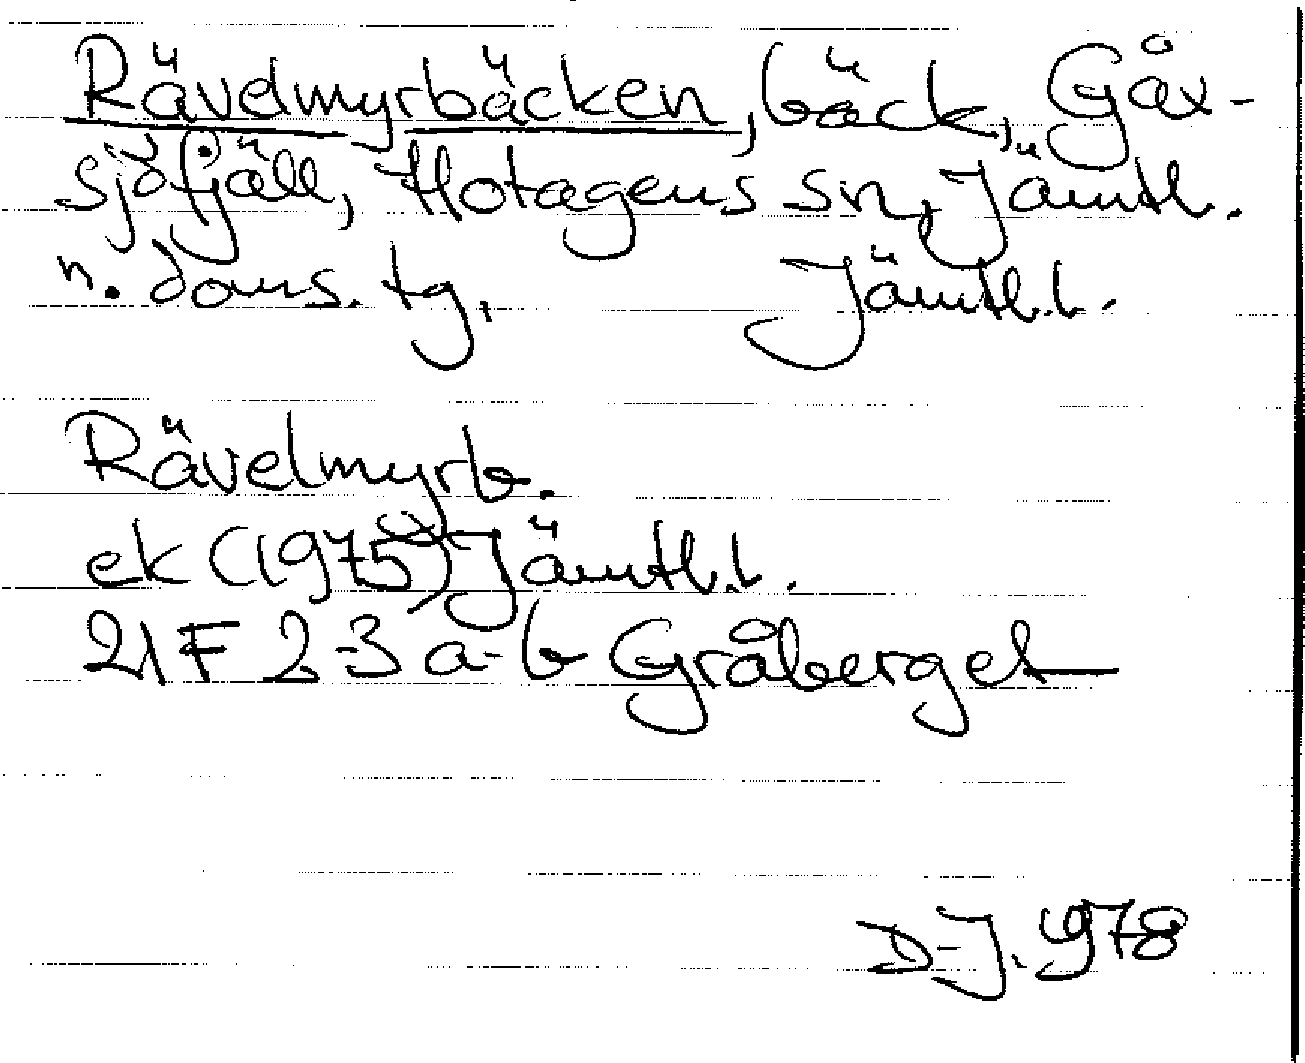 Rävelmyrbäcken, bäck, Gåx-
sjöfjäll, Hotagens sn, Jämtl.
n. doms. tg. Jämtl.l.
Rävelmyrb.
ek (1975) Jämtl.l.
21 F 2-3 a-b Gråberget
D-J. 1978